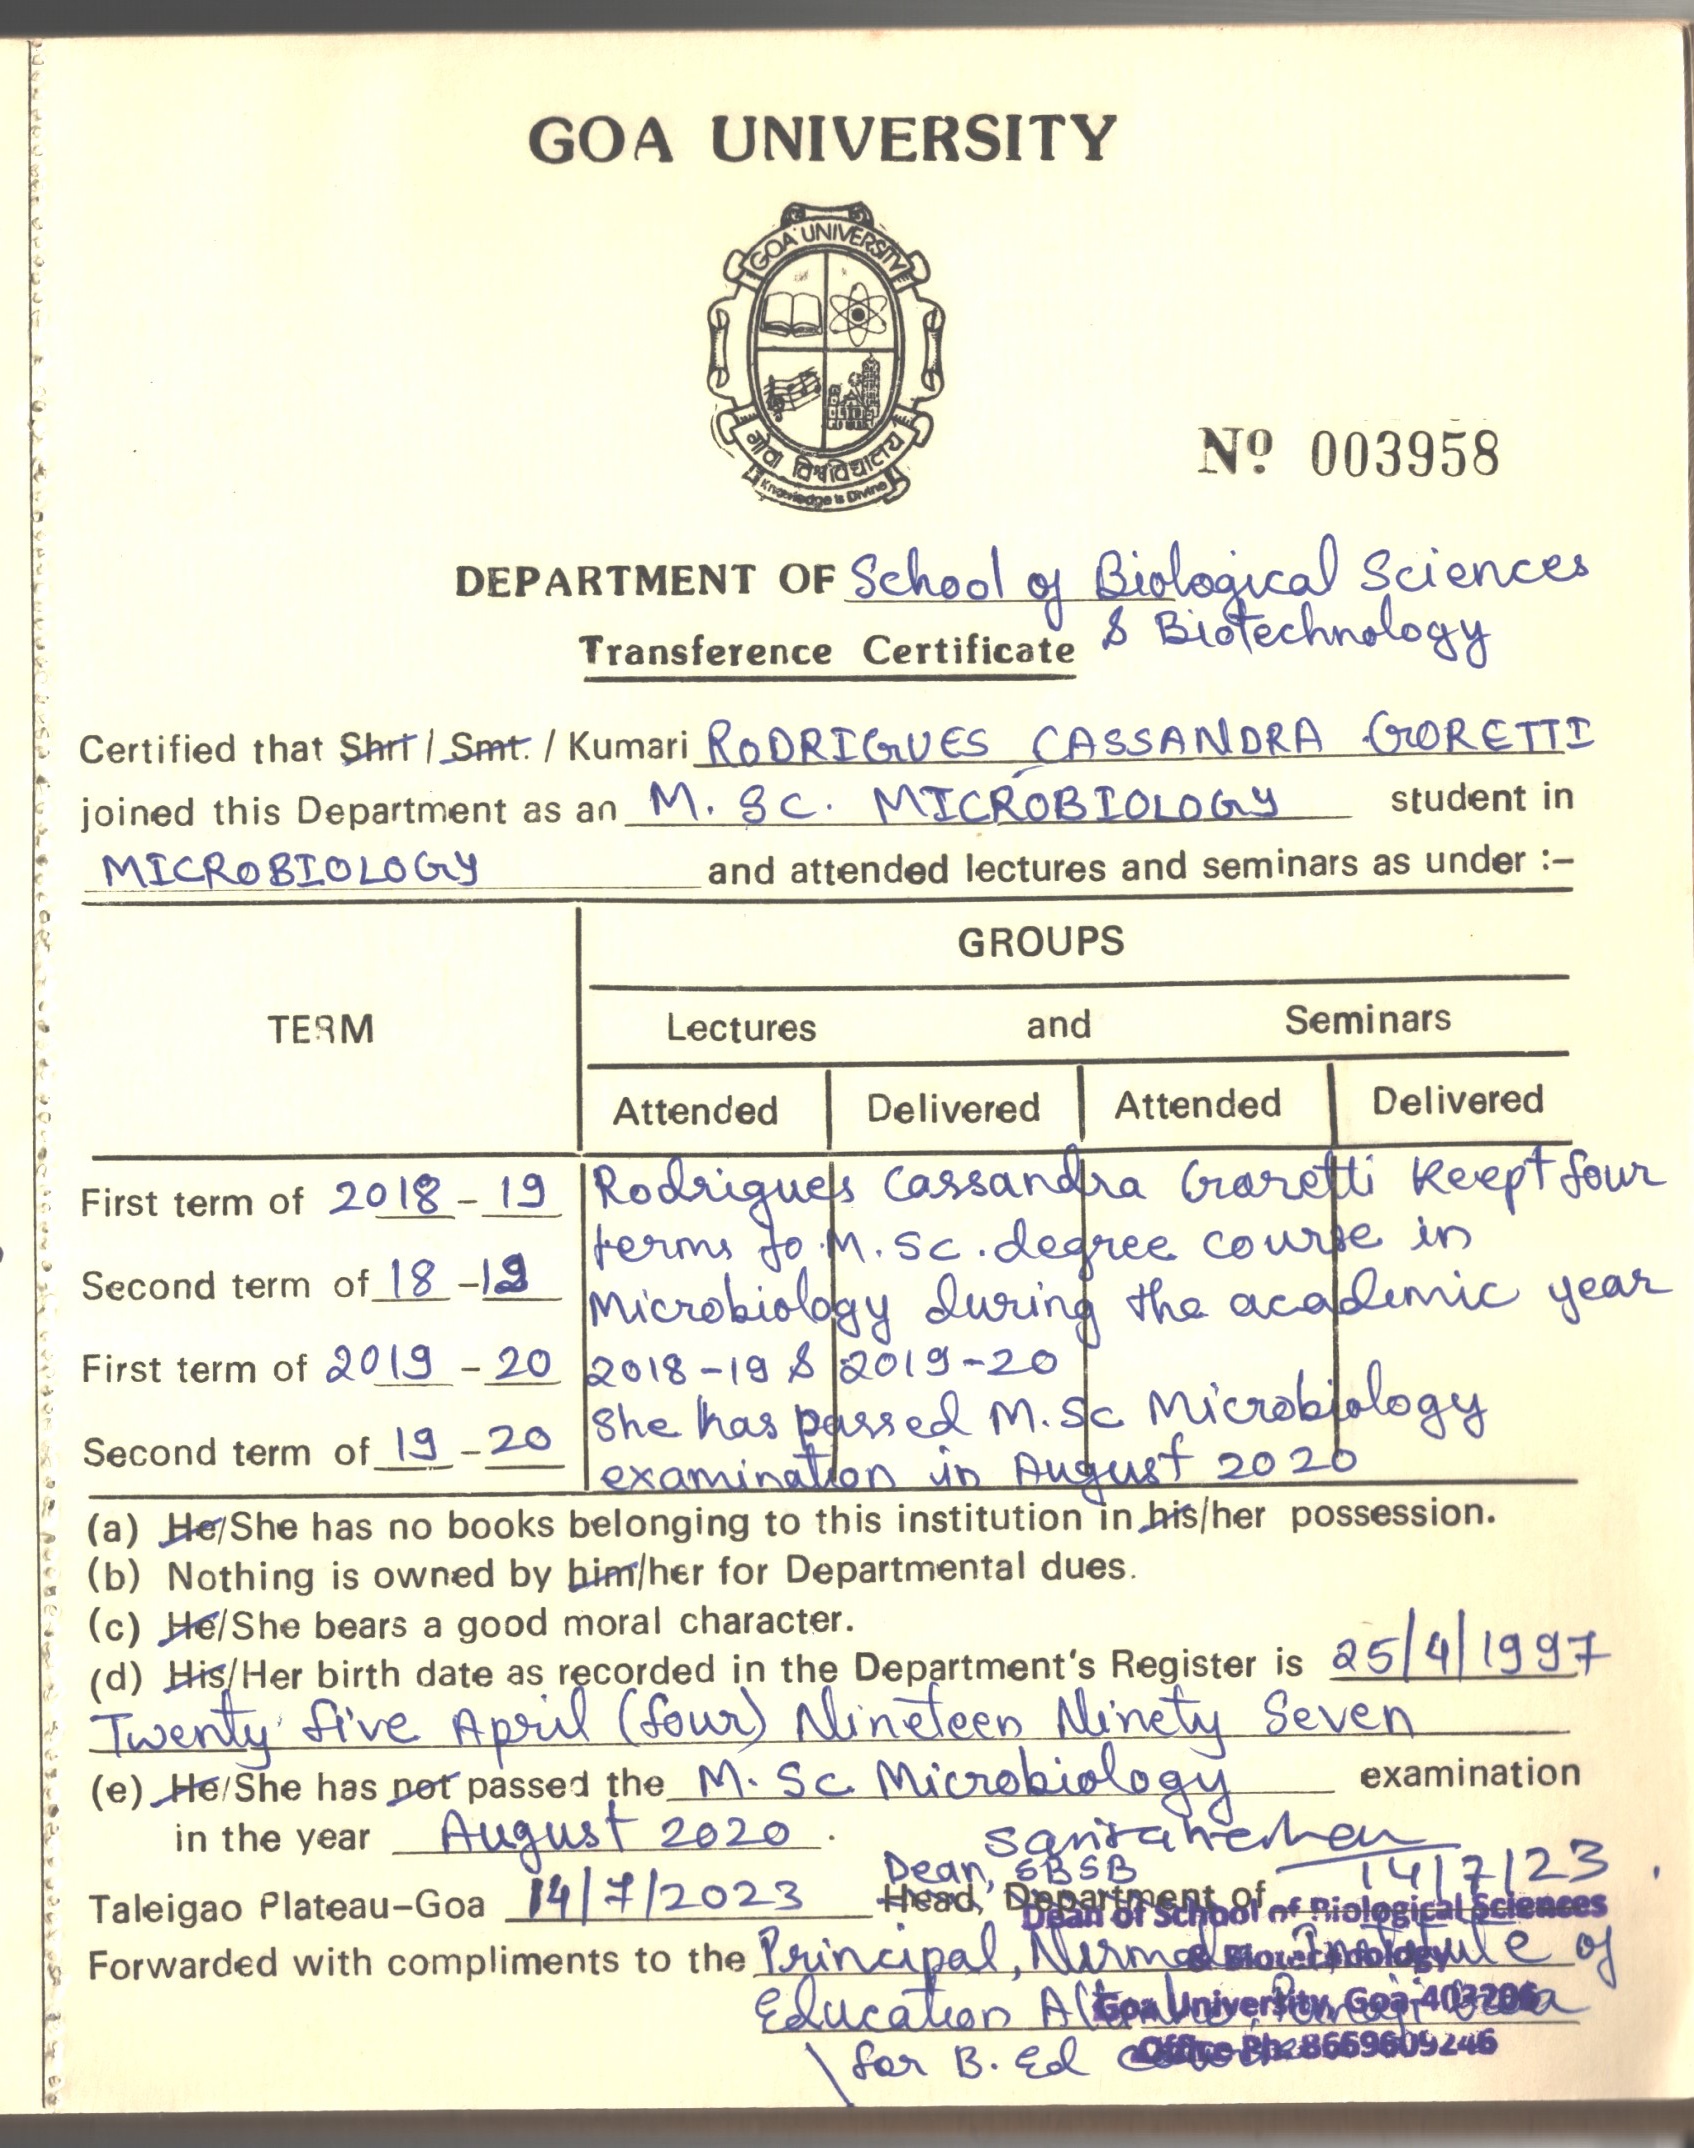 GOA UNIVERSITY
GOA UNIVERSITY
गोवा विश्वविद्यालय
Knowledge is Divine
Nº 003958
DEPARTMENT OF School of Biological Sciences
& Biotechnology
Transference Certificate
Certified that Shri / Smt. / Kumari RODRIGUES CASSANDRA GORETTI
joined this Department as an M. Sc. MICROBIOLOGY student in
MICROBIOLOGY and attended lectures and seminars as under :–
GROUPS
TERM
Lectures and Seminars
Attended Delivered Attended Delivered
First term of 2018 - 19
Second term of 18 - 19
First term of 2019 - 20
Second term of 19 - 20
Rodrigues Cassandra Goretti Keept four
terms to M. Sc. degree course in
Microbiology during the academic year
2018-19 & 2019-20
She has passed M. Sc Microbiology
examination in August 2020
(a) He/She has no books belonging to this institution in his/her possession.
(b) Nothing is owned by him/her for Departmental dues.
(c) He/She bears a good moral character.
(d) His/Her birth date as recorded in the Department's Register is 25/4/1997
Twenty five April (four) Nineteen Ninety Seven
(e) He/She has not passed the M. Sc. Microbiology examination
in the year August 2020 .
14/7/23
Dean, SBSB
Taleigao Plateau–Goa 14/7/2023 Head, Department of
Dean of School of Biological Sciences
& Biotechnology
Goa University, Goa-403206
Office Ph: 8669609246
Forwarded with compliments to the Principal, Nirmala Institute of
Education Altinho, Panaji Goa
for B. Ed